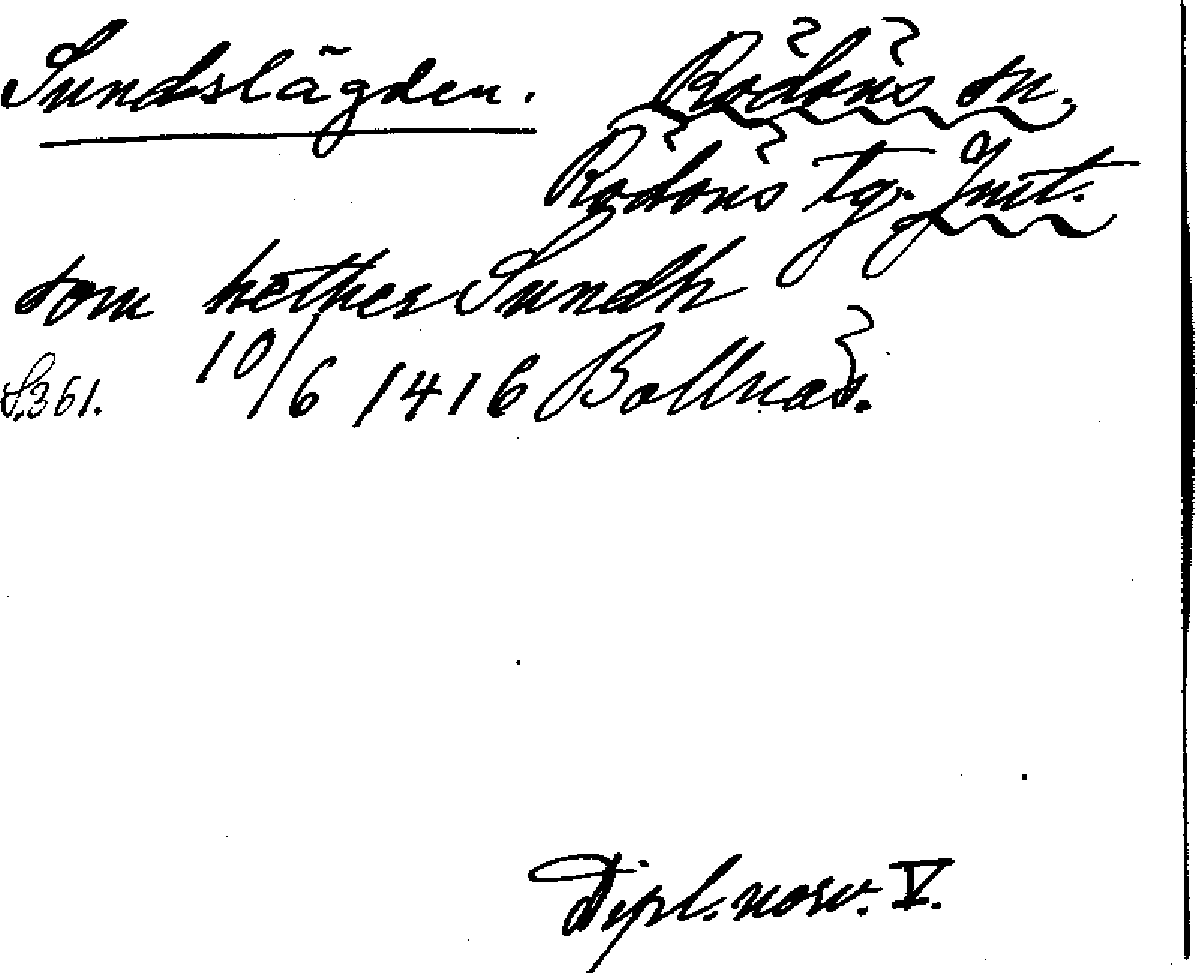 Sundslägden. Rödöns sn.
Rödöns tg. Jmt.
som hether Sundh
S. 361. 10/6 1416 Bollnäs.
Dipl. norv. V.